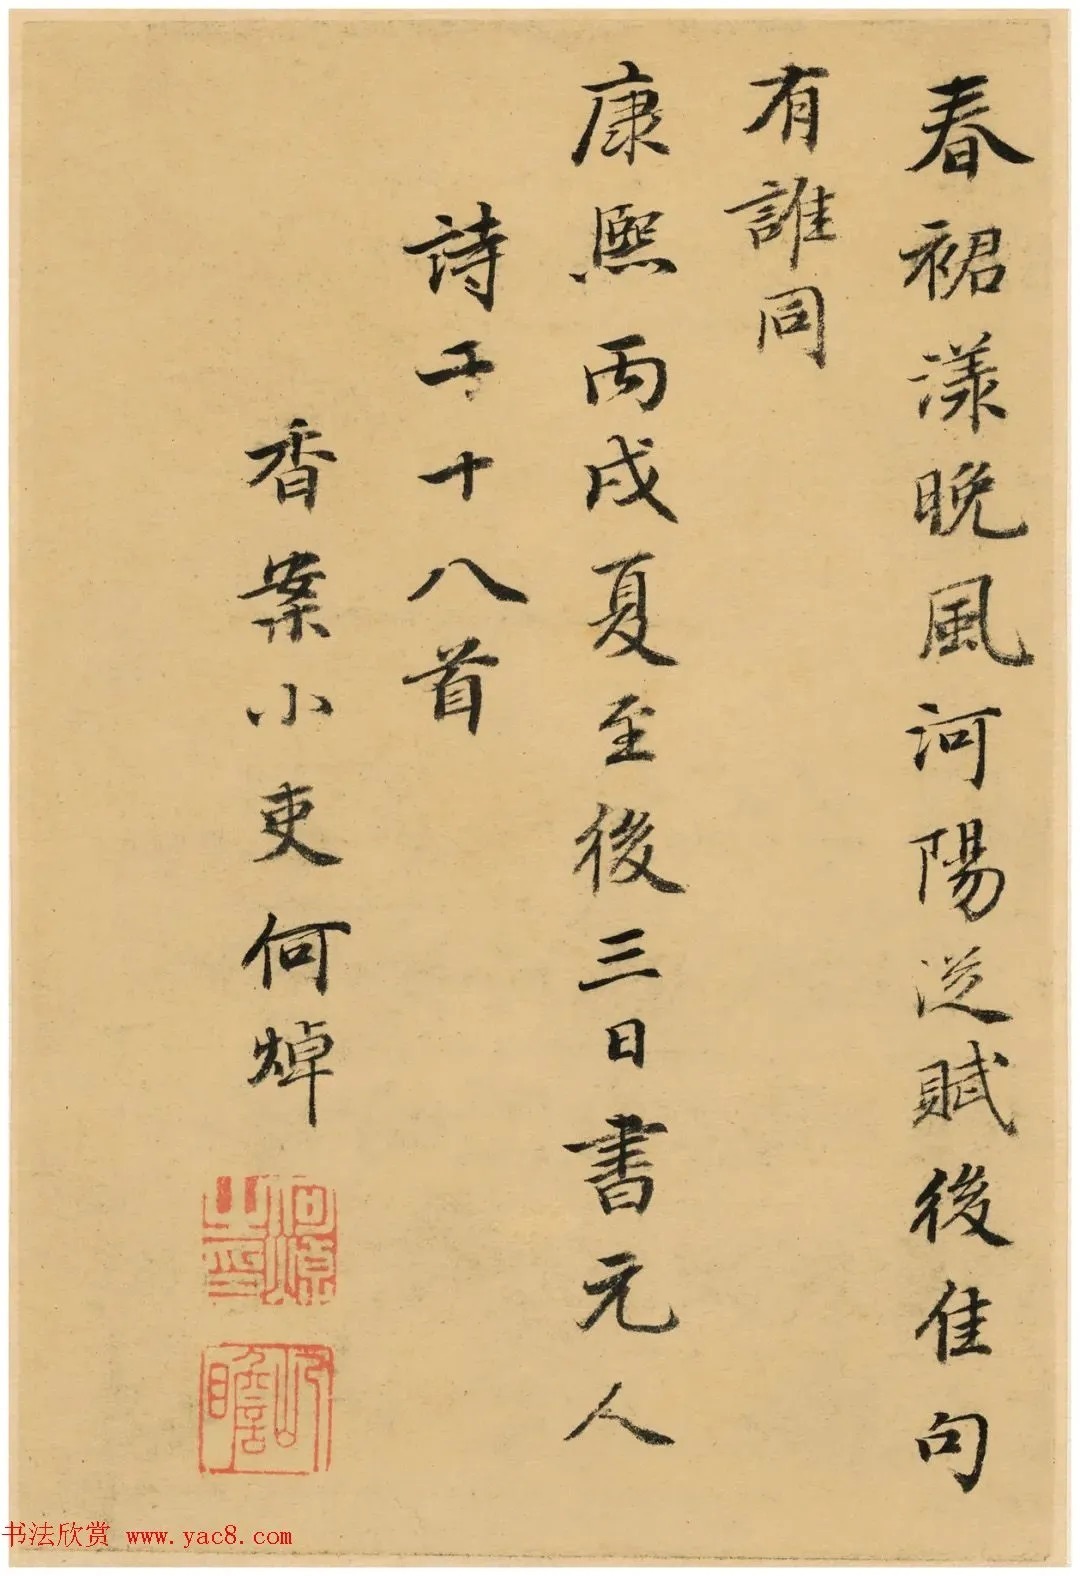 春裙漾晚風河陽從賦後佳句
有誰同
康熙丙戌夏至後三日書元人
詩十八首
香案小吏何焯
何焯
之印
屺瞻
书法欣赏 www.yac8.com